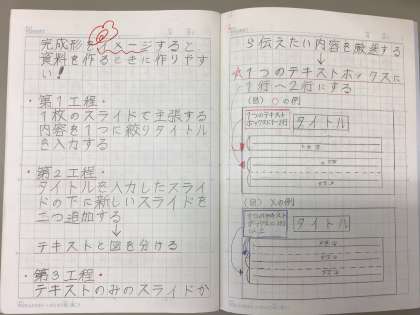 完成形をイメージすると
資料を作るときに作りやす
い!
・第1工程・
1枚のスライドで主張する
内容を1つに絞りタイトル
を入力する
・第2工程・
タイトルを入力したスライ
ドの下に新しいスライドを
二つ追加する
↓
テキストと図を分ける
・第3工程・
テキストのみのスライドか
ら伝えたい内容を厳選する
↓
☆1つのテキストボックスに
1行へ2行にする
(図) ○の例
1つのテキスト
タイトル
(図) ×の例
タイトル